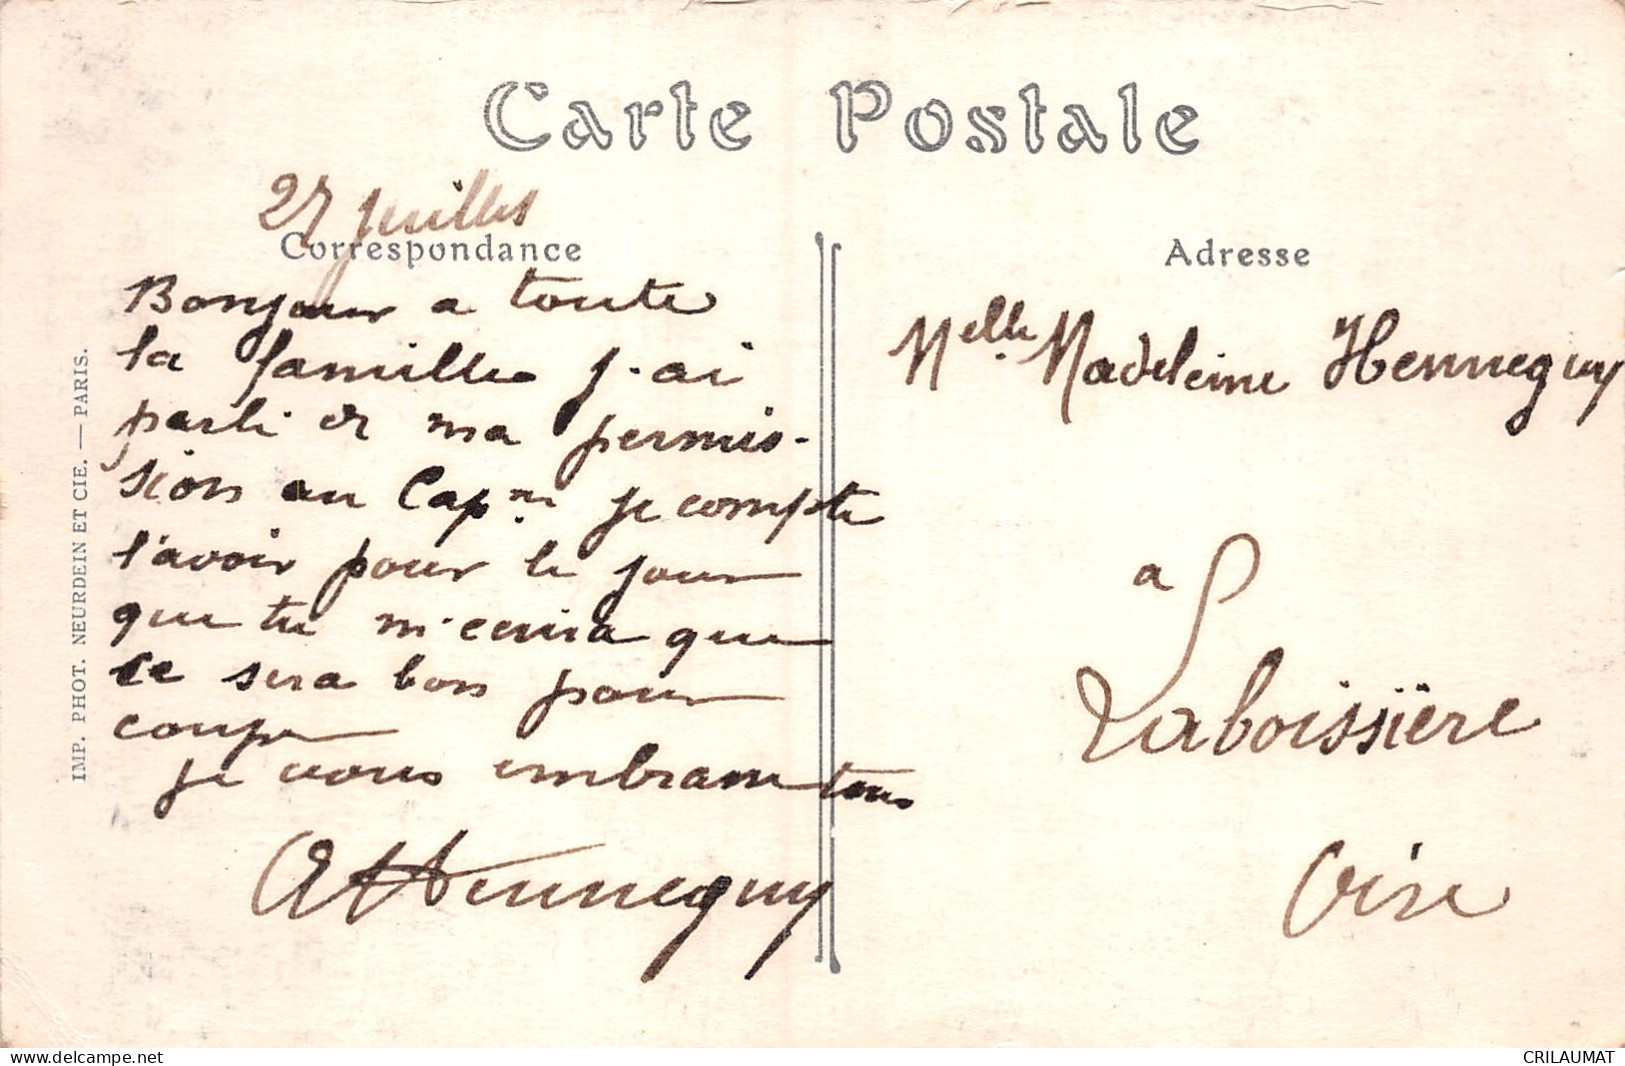 Carte Postale
27 juillet
Correspondance
Bonjour a toute
la famille j'ai
parlé de ma permis-
sion au Cap.ne je compte
l'avoir pour le jour
que tu m'écrira que
ce sera bon pour
coupe
je vous embrasse tous
A Hennequy
Adresse
Melle Madeleine Hennequy
a
Laboissière
Oise
IMP. PHOT. NEURDEIN ET CIE. — PARIS.
www.delcampe.net
CRILAUMAT